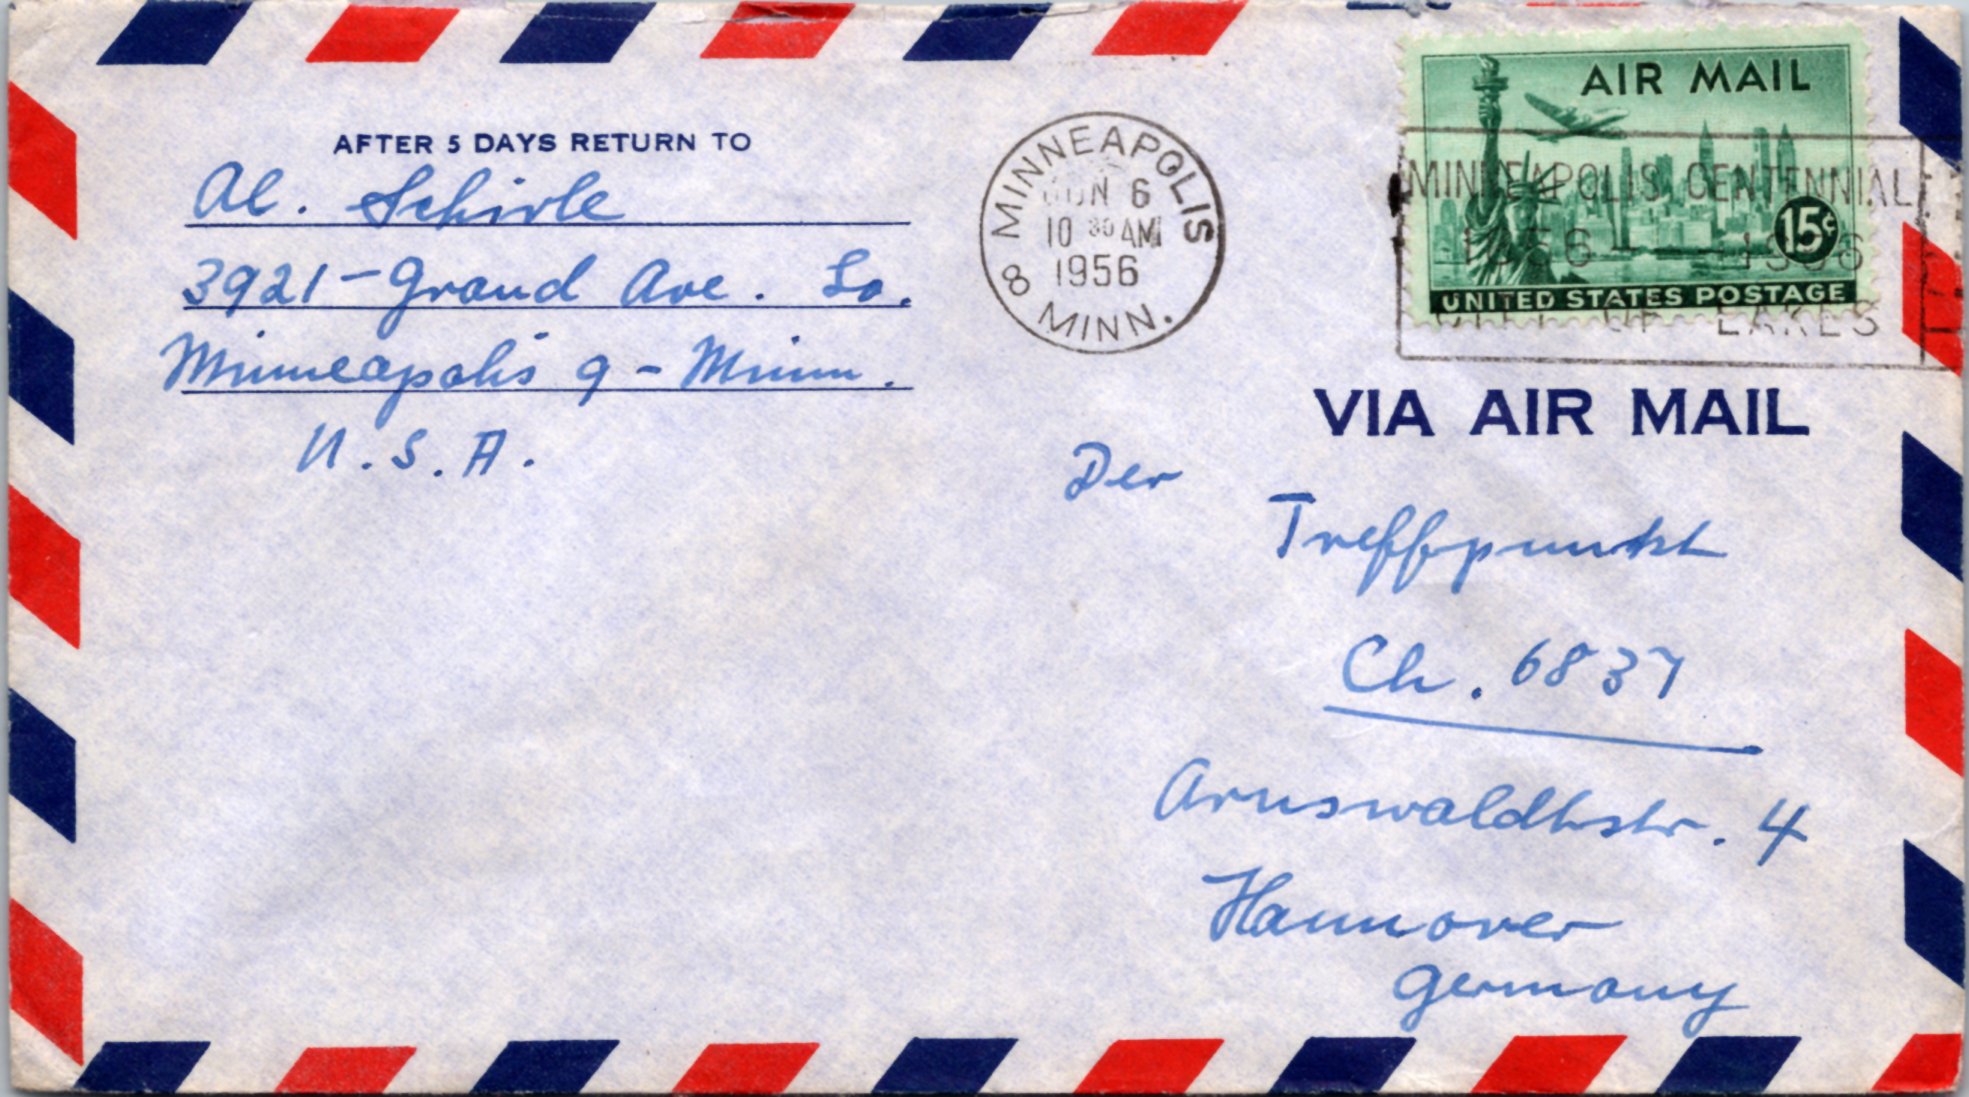 AFTER 5 DAYS RETURN TO
Al. Schirle
3921-Grand Ave. So.
Minneapolis 9 - Minn.
U.S.A.
MINNEAPOLIS
JUN 6
10 30 AM
1956
8 MINN.
AIR MAIL
15¢
UNITED STATES POSTAGE
MINNEAPOLIS CENTENNIAL
1856 — 1956
CITY OF LAKES
VIA AIR MAIL
Der
Treffpunkt
Ch. 6837
Arnswaldtstr. 4
Hannover
Germany